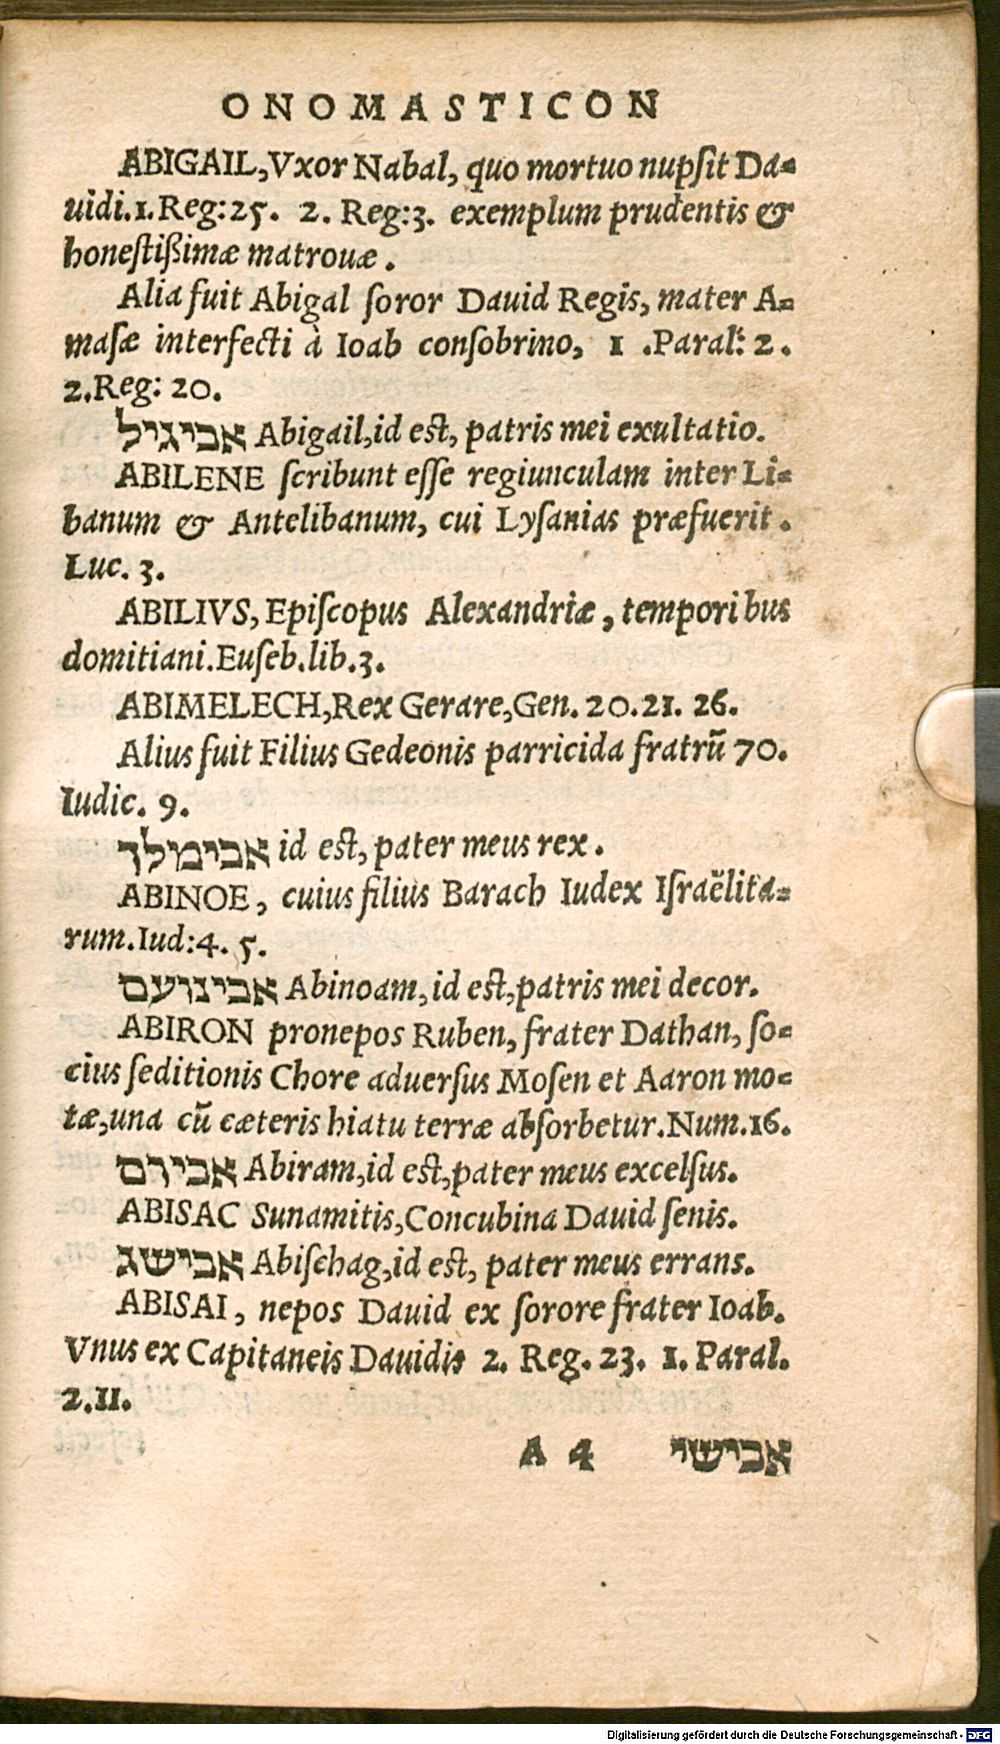 ONOMASTICON
ABIGAIL, Vxor Nabal, quo mortuo nupſit Da=
uidi.1.Reg:25. 2. Reg:3. exemplum prudentis &
honeſtißimæ matrouæ.
Alia fuit Abigal ſoror Dauid Regis, mater A=
maſæ interfecti à Ioab conſobrino, 1 .Paral: 2.
2.Reg: 20.
אביגיל Abigail,id est, patris mei exultatio.
ABILENE ſcribunt eſſe regiunculam inter Li=
banum & Antelibanum, cui Lyſanias præfuerit.
Luc. 3.
ABILIVS, Epiſcopus Alexandriæ, temporibus
domitiani.Euſeb.lib.3.
ABIMELECH,Rex Gerare,Gen. 20.21. 26.
Alius fuit Filius Gedeonis parricida fratrū 70.
Iudic. 9.
אבימלך id est, pater meus rex.
ABINOE, cuius filius Barach Iudex Iſraëlita=
rum.Iud:4. 5.
אבינועם Abinoam, id est,patris mei decor.
ABIRON pronepos Ruben, frater Dathan, ſo=
cius ſeditionis Chore aduerſus Moſen et Aaron mo=
tæ,una cū cæteris hiatu terræ abſorbetur.Num.16.
אבירם Abiram,id est,pater meus excelſus.
ABISAC Sunamitis,Concubina Dauid ſenis.
אבישג Abiſchag,id est, pater meus errans.
ABISAI, nepos Dauid ex ſorore frater Ioab.
Vnus ex Capitaneis Dauidis 2. Reg. 23. 1. Paral.
2.11.
A 4 אבישי
Digitalisierung gefördert durch die Deutsche Forschungsgemeinschaft - DFG